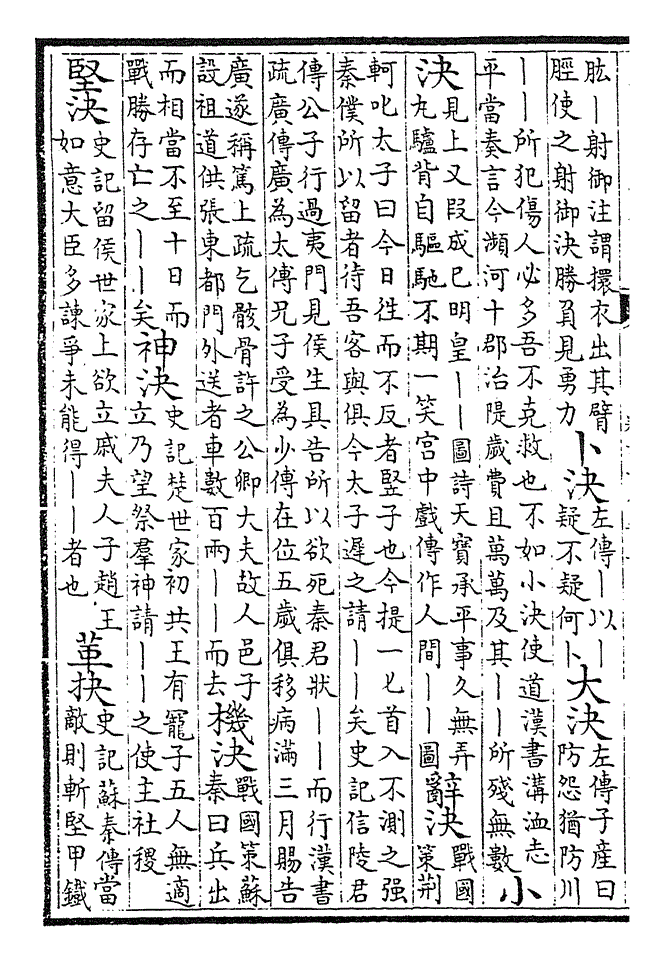 肱丨射御注謂擐衣出其臂脛使之射御決勝負見勇力卜決左傳丨以丨疑不疑何卜大決左傳子產曰防怨猶防川
丨丨所犯傷人必多吾不克救也不如小決使道漢書溝洫志平當奏言今瀕河十郡治隄歲費且萬萬及其丨丨所殘無數小
決見上又段成已明皇丨丨圖詩天寶承平事久無弄九驢背自驅馳不期一笑宮中戲傳作人間丨丨圖辭決戰國策荆
軻叱太子曰今日徃而不反者豎子也今提一匕首入不測之强秦僕所以留者待吾客與俱今太子遲之請丨丨矣史記信陵君
傳公子行過夷門見侯生具告所以欲死秦君狀丨丨而行漢書疏廣傳廣為太傅兄子受為少傅在位五歲俱移病滿三月賜告
廣遂稱篤上疏乞骸骨許之公卿大夫故人邑子設祖道供張東都門外送者車數百兩丨丨而去機決戰國策蘇秦曰兵出
而相當不至十日而戰勝存亡之丨丨矣神決史記楚世家初共王有寵子五人無適立乃望祭羣神請丨丨之使主社稷
堅決史記留侯世家上欲立戚夫人子趙王如意大臣多諫爭未能得丨丨者也革抉史記蘇秦傳當敵則斬堅甲鐵